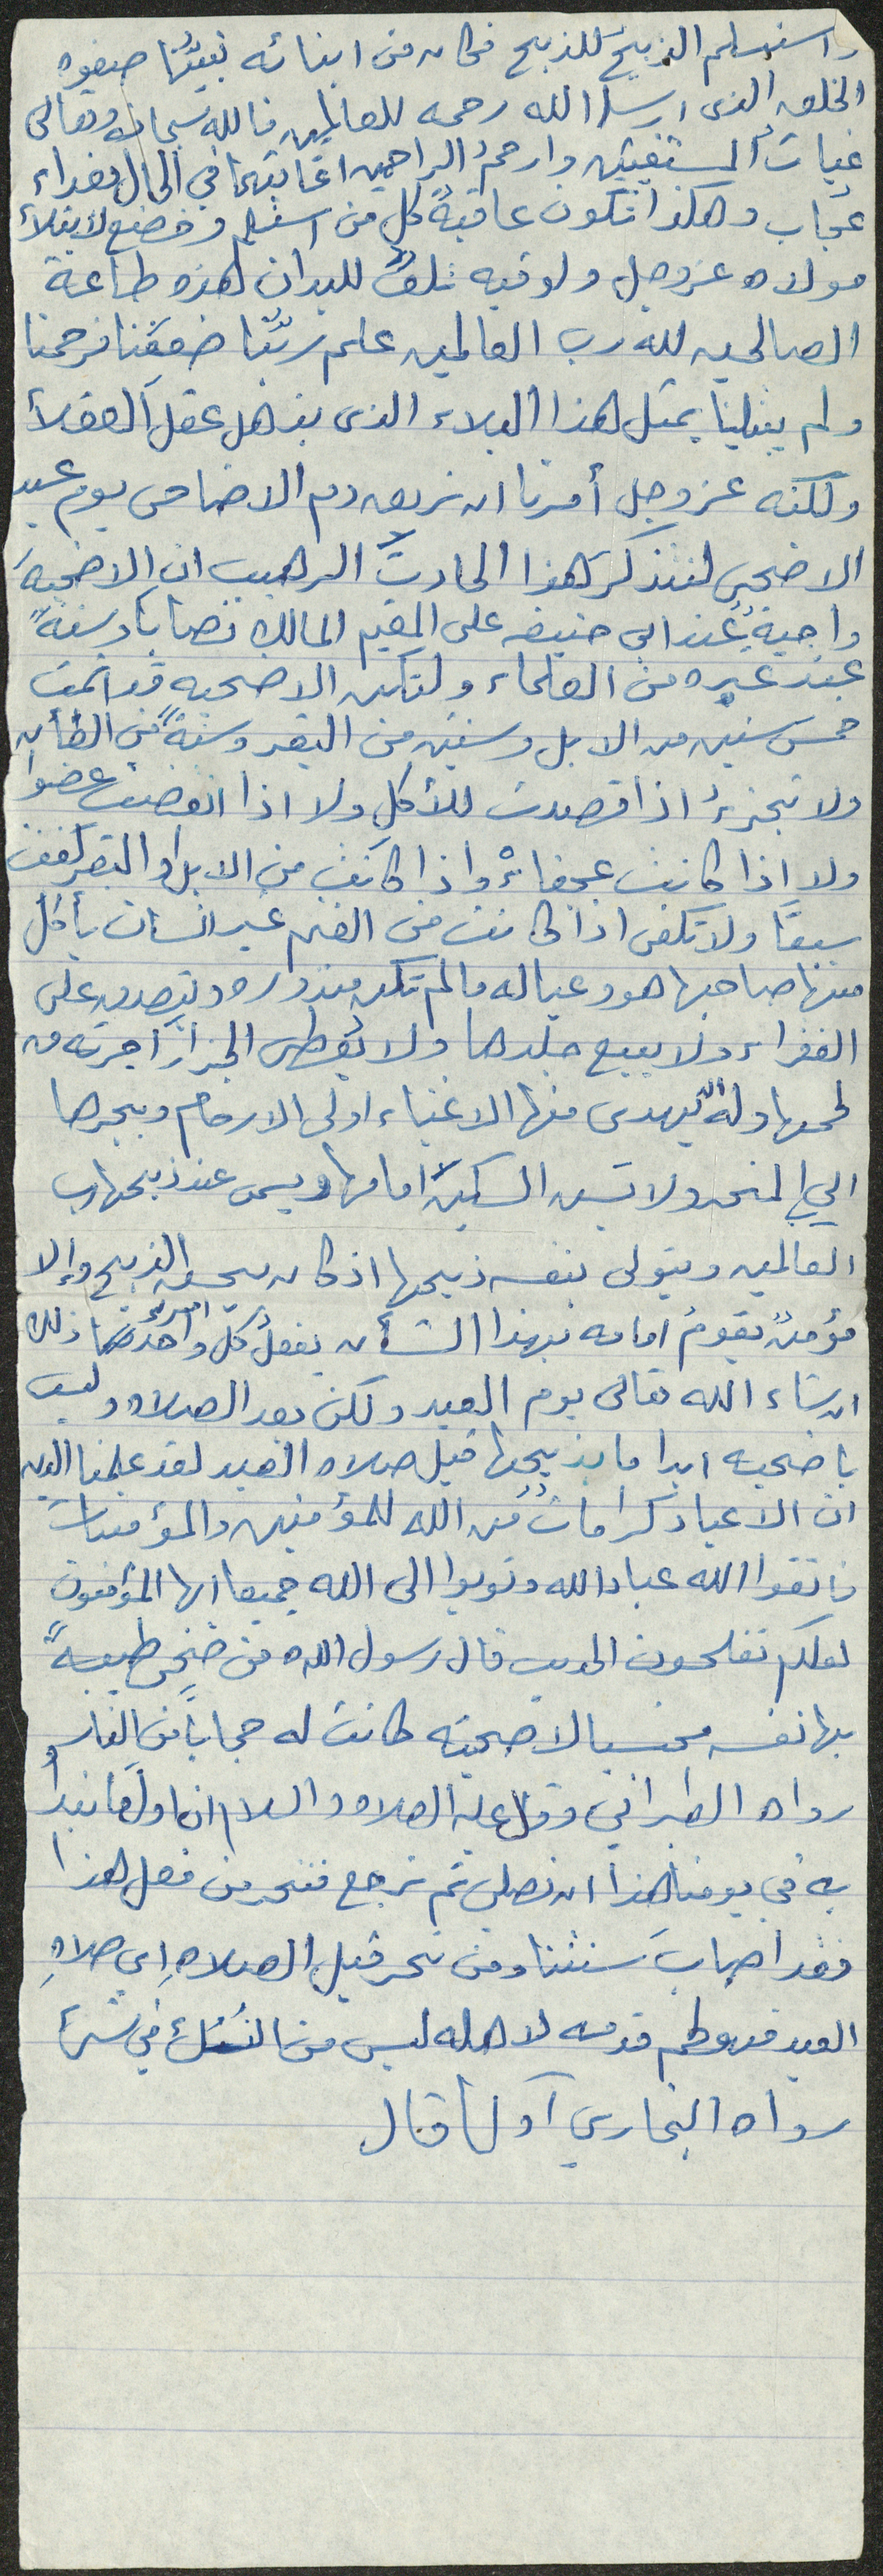 واستسلم الذبيحُ للذبح فكان من ابنائه نبيُّنا صفوه
الخلق الذى ارسل الله رحمه للعالمين فالله سبحانه وتعالى
غياثُ المستغيثين وارحمُ الراحمين اغاثهما في الحال بفداء
عجُاب وهكذا تكون عاقبةُ كل من استسلم وخضع لابتلاء
مولاه عزوجل ولو فيه تلفُ للبدان هذه طاعة
الصالحين لله رب العالمين علم ربُّنا ضعفَنا فرحمنا
ولم يبتلينا بمثل هذا البلاء الذى يذهل عقلَ العقلاء
ولكنه عزوجل أمرنا ان نريق دم الاضاحى يوم عيد
الاضحى لنتذكرَ هذا الحادثَ الرهيب ان الاضحيهَ
واجبةُ عند ابى حنيفه على المقيم المالك نصابا وسنةُ
عند غيره من العلماء ولتكن الاضحيه قد اتمت
خمس سنين من الابل وسنتين من البقر وسنةً من الضأن
ولا تجزئُ اذا قصدت للأكلِ ولا اذا انقصت عضوا
ولا اذا كانت عجفاءْ واذا كانت من الابل او البقر كفت
سبعًا ولا تكفى اذا كانت من الغنم غير انسان يأكل
منها صاحبها هو وعياله مالم تكن منذوره ويتصدق على
الفقراء ولا يبيع جلدها ولا يُعطى الجزارَ اجرته من
لحمها وله ان يهدى منها الاغنياء اولى الارحام ويجرها
الي المنحر ولا يسن السكينَ امامها ويسمى عند ذبحها رب
العالمين ويتولى بنفسه ذبحها اذ كان يحسن الذبح وإلا
مؤمنٌ يقومُ امامه بهذا الشأن يفعلُ كلُ واحد امرئ منا ذلك
ان شاء الله تعالى يوم العيد ولكن بعد الصلاه وليست
باضحيه ابدا ما يذبحها قبل صلاه العيد لقد علمنا الدين
ان الاعياد كراماتُ من الله للمؤمنين والمؤمنات
فاتقوا الله عباد الله وتوبوا الى الله جميعا ايها المؤمنون
لعلكم تفلحون الحديث قال رسول الله من ضحى طيبةً
بها نفسه محتسبا لاضحيته كانت له حجاباً من النار
رواه الطبراني وقال عليه الصلاه والسلام ان اولَ ما نبدأُ
به في يومنا هذا ان نصلي ثم نرجع فننحر من فعل هذا
فقد اصابَ سنتنا ومن نحر قبل الصلاه اِي صلاهِ
العيد فهو لحم قدمه لاهله ليس من النُسُك في شئ
رواه البخاري أو كما قال